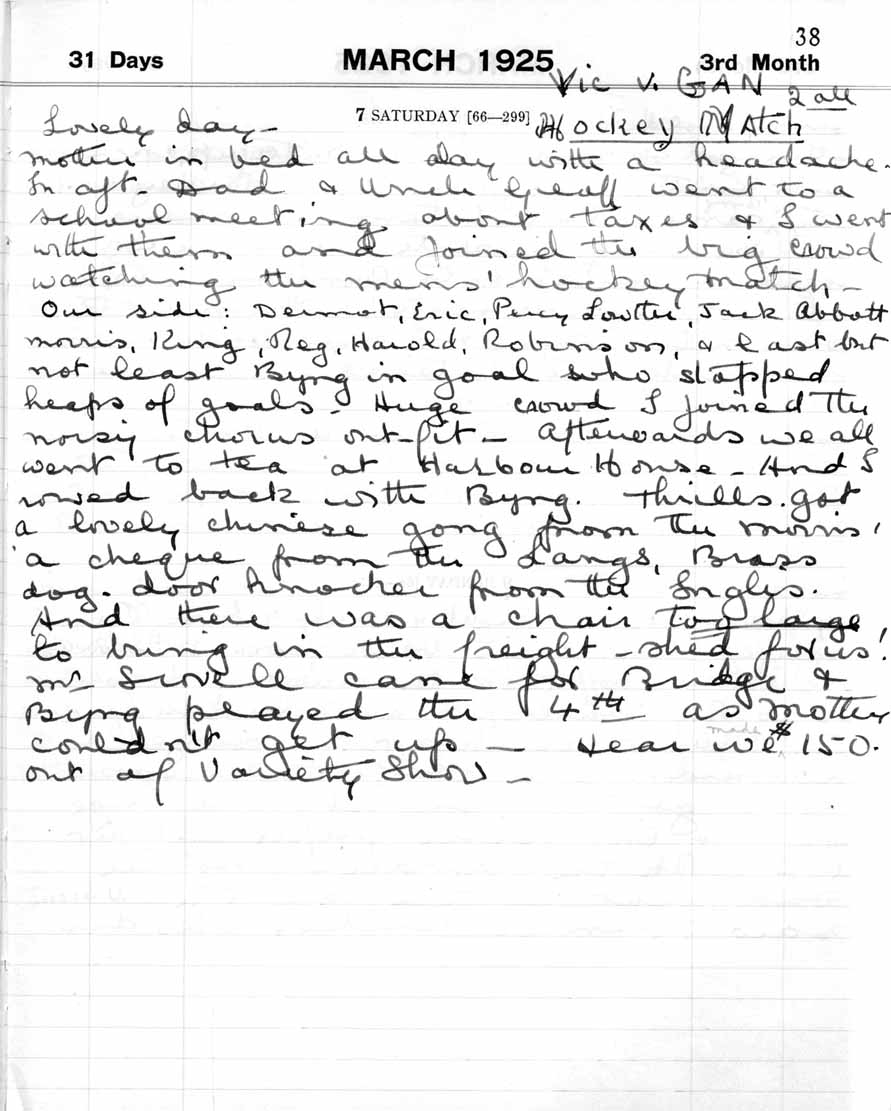 38
31 Days MARCH 1925 3rd Month
Vic v. GAN 2 all
7 SATURDAY [66—299] Hockey MAtch
Lovely day —
Mother in bed all day with a headache.
In aft. Dad & Uncle Geoff went to a
school meeting about taxes & I went
with them and joined the big crowd
watching the mens' hockey match —
Our side: Dermot, Eric, Percy Lowther, Jack Abbott
Morris, King, Reg, Harold, Robinson, & last but
not least Byng in goal who stopped
heaps of goals — Huge crowd I joined the
noisy chorus out-fit — Afterwards we all
went to tea at Harbour House — And I
rowed back with Byng. Thrills. got
a lovely chinese gong from the Morris'
a cheque from the Langs, Brass
dog. door knocker from the Ingles.
And there was a chair too large
to bring in the freight-shed for us!
Mr came for Bridge &
Byng played the 4th as Mother
couldn't get up — Hear we made $150.
out of Variety Show —